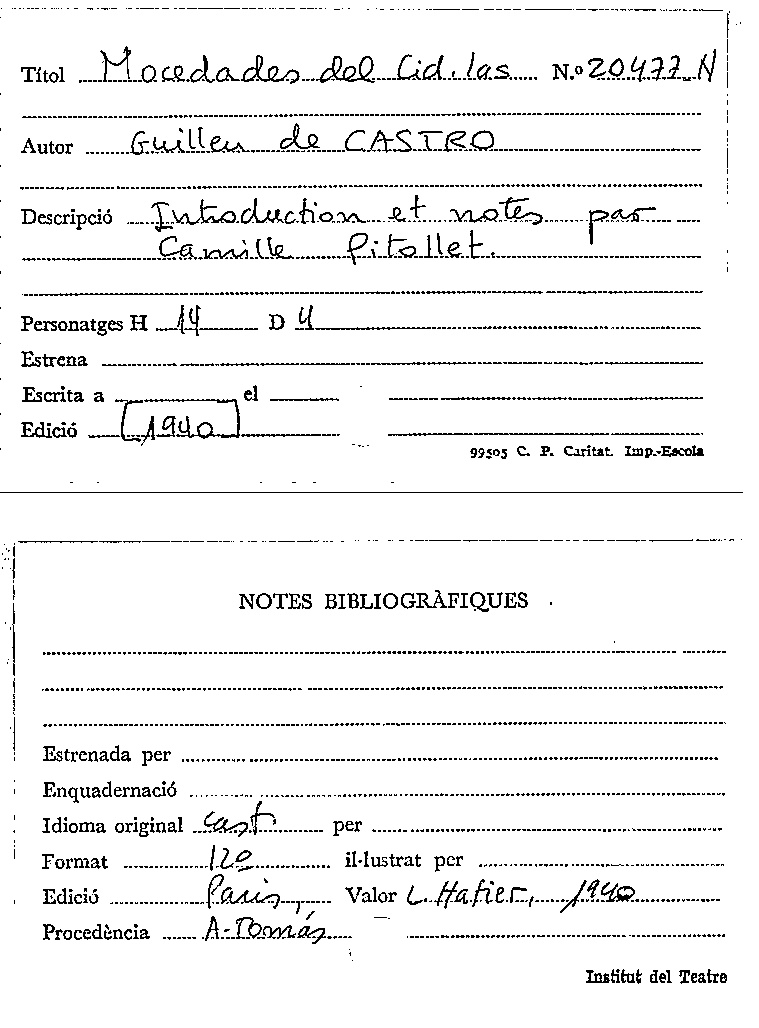 Títol Mocedades del Cid. las N.º 20477-N
Autor Guillen de CASTRO
Descripció Introduction et notes par
Camille Pitollet.
Personatges H 14 D 4
Estrena
Escrita a el
Edició [1940]
99505 C. P. Caritat. Imp.-Escola
NOTES BIBLIOGRÀFIQUES
Estrenada per
Enquadernació
Idioma original cast per
Format 12º il·lustrat per
Edició Paris, Valor L. Hatier, 1940
Procedència A-Tomás
Institut del Teatre